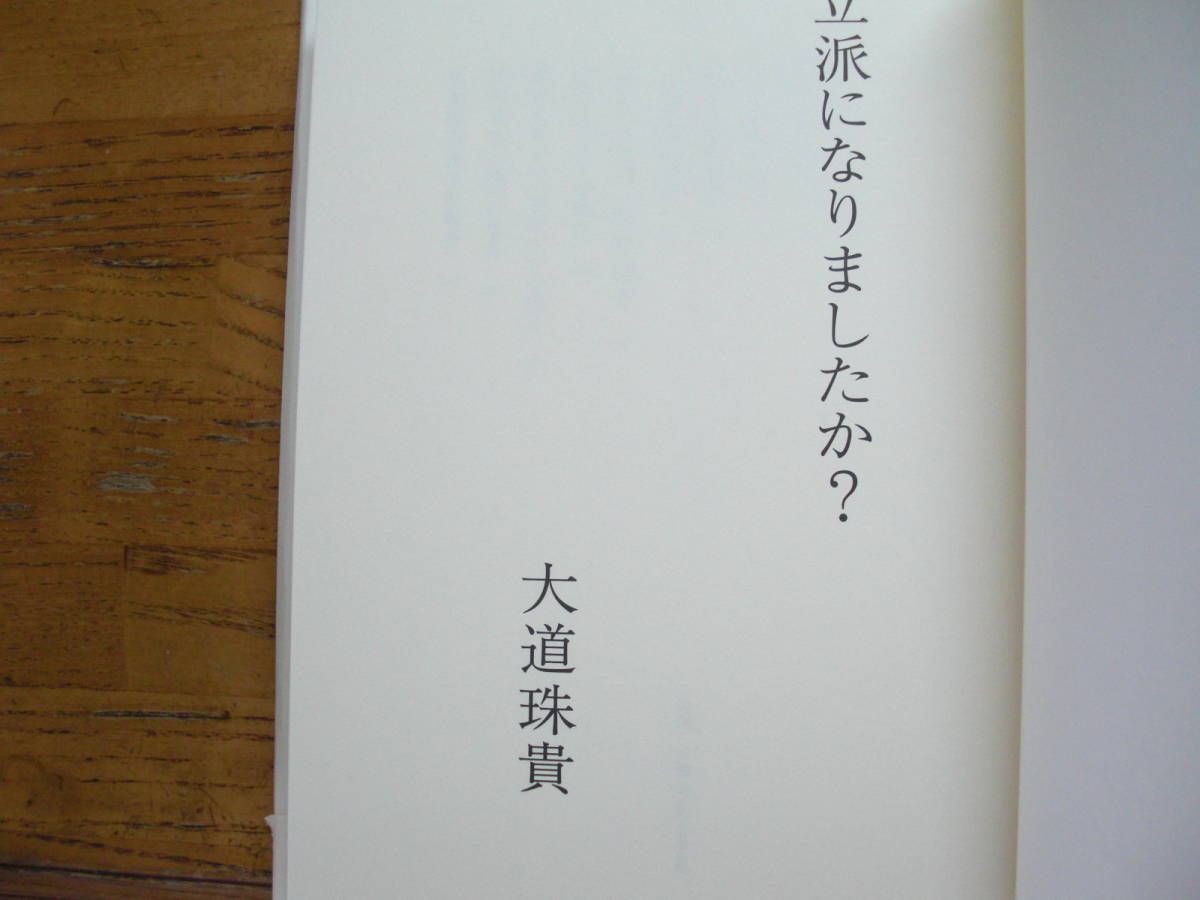 立派になりましたか?
大道珠貴